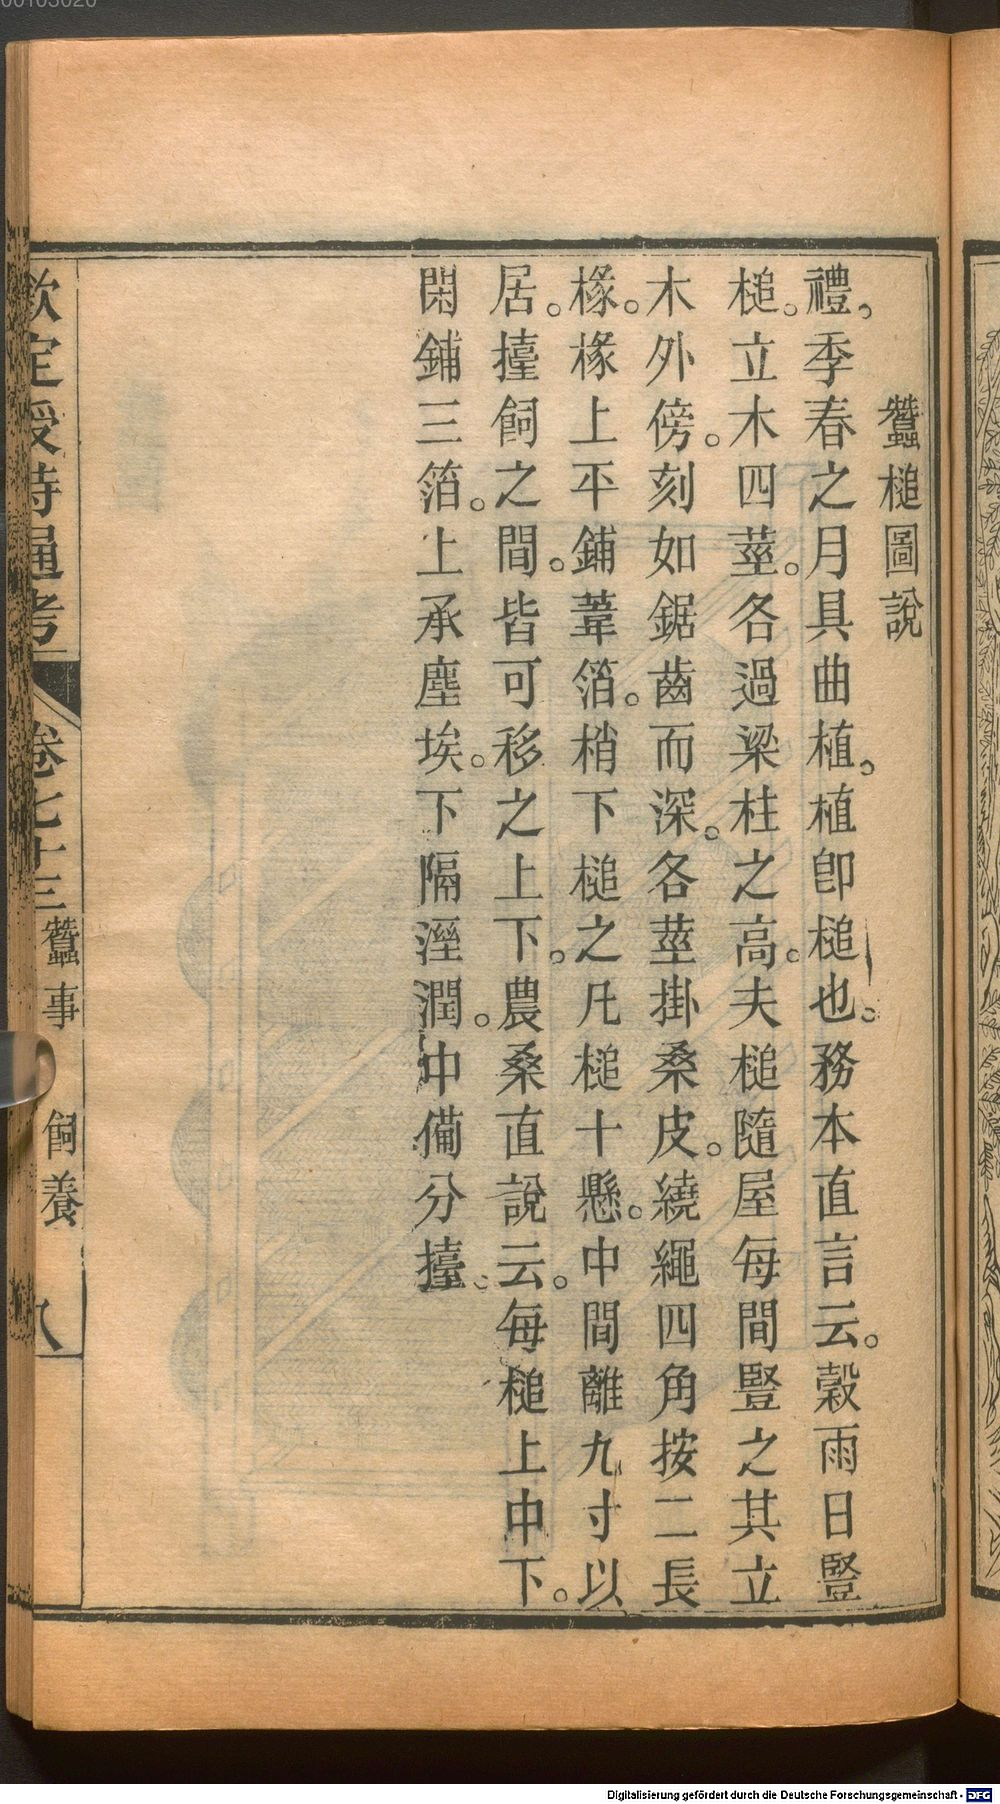 蠶槌圖說
禮季春之月具曲植植卽槌也務本直言云穀雨日豎
槌立木四莖各過梁柱之高夫槌隨屋每間豎之其立
木外傍刻如鋸齒而深各莖掛桑皮繞繩四角按二長
椽椽上平鋪葦箔梢下槌之凡槌十懸中間離九寸以
居擡飼之間皆可移之上下農桑直說云每槌上中下
閑鋪三箔上承塵埃下隔溼潤中備分擡
欽定授時通考 卷七十三 蠶事 飼養 八
Digitalisierung gefördert durch die Deutsche Forschungsgemeinschaft - DFG